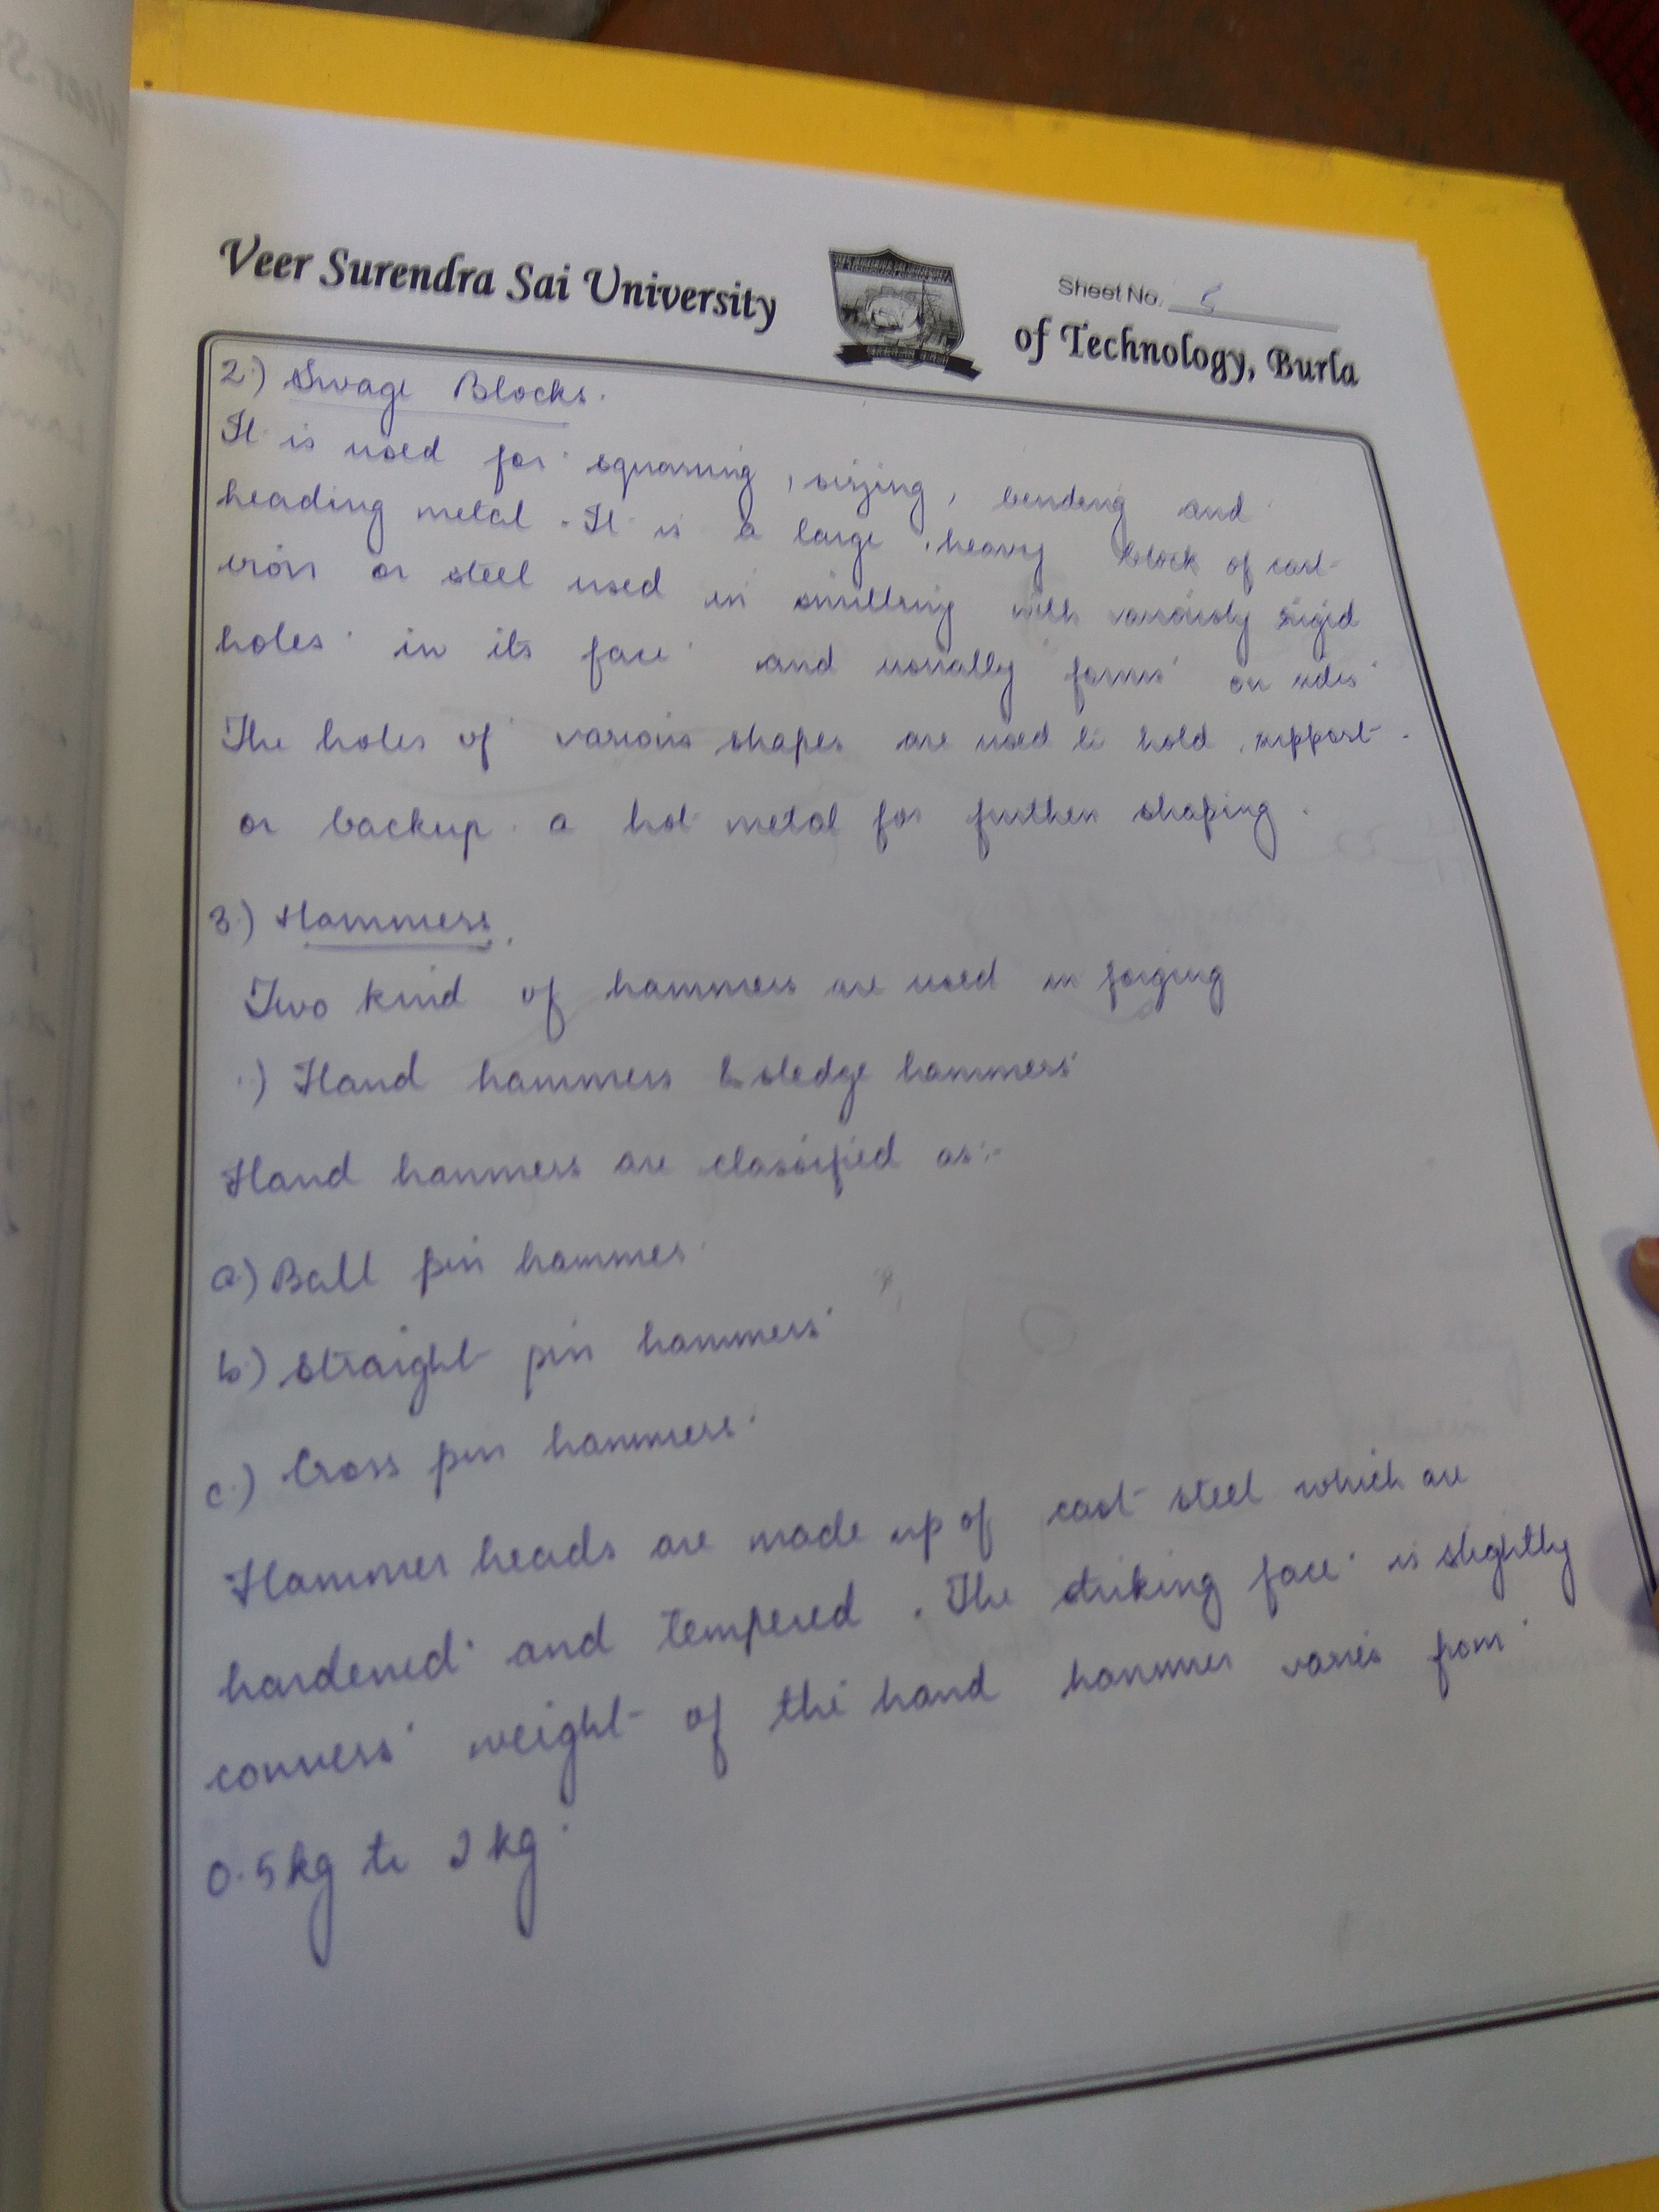 Veer Surendra Sai University
Sheet No.
of Technology, Burla
2.) Swage Blocks.
It is used for squaring, sizing, bending and
heading metal. It is a large, heavy block of cast
iron or steel used in smithing with variously sized
holes in its face and usually forms on sides
The holes of various shapes are used to hold, support
or backup a hot metal for further shaping.
3.) Hammers.
Two kind of hammers are used in forging
1.) Hand hammers & sledge hammers
Hand hammers are classified as:-
a) Ball pin hammer
b.) Straight pin hammers
c.) Cross pin hammers
Hammer heads are made up of cast steel which are
hardened and tempered. The striking face is slightly
convers weight of the hand hammer varies from
0.5 kg to 2 kg.